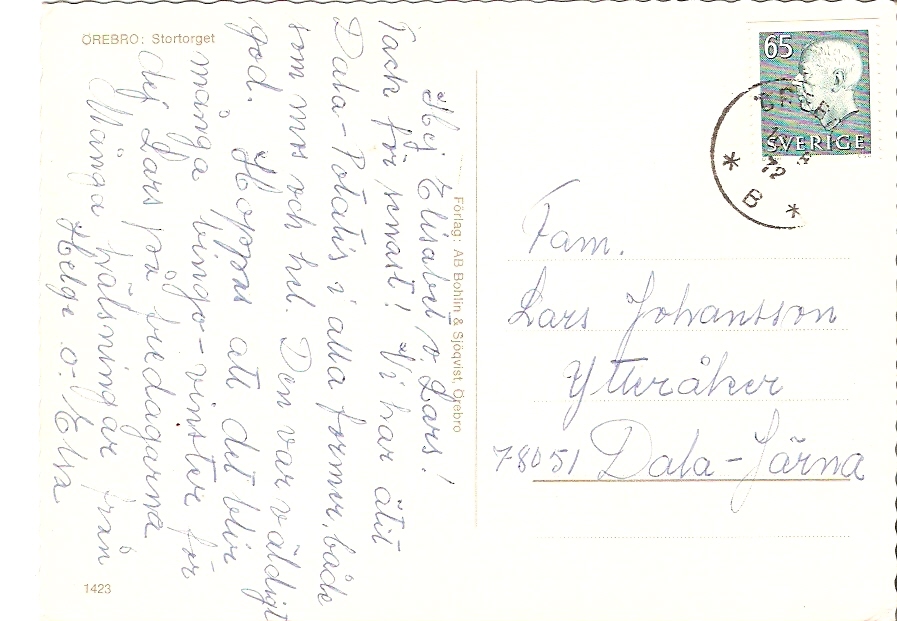 ÖREBRO: Stortorget
Hej Elisabet o. Lars!
Tack för senast! Vi har ätit
Dala-Potatis i alla former, både
som mos och hel. Den var väldigt
god. Hoppas att det blir
många bingo-vinster för
dej Lars på fredagarna
Många hälsningar från
Helge o. Elsa
1423
Förlag: AB Bohlin & Sjöqvist, Örebro
65
SVERIGE
72
* B *
Fam.
Lars Johansson
Ytteråker
78051 Dala-Järna